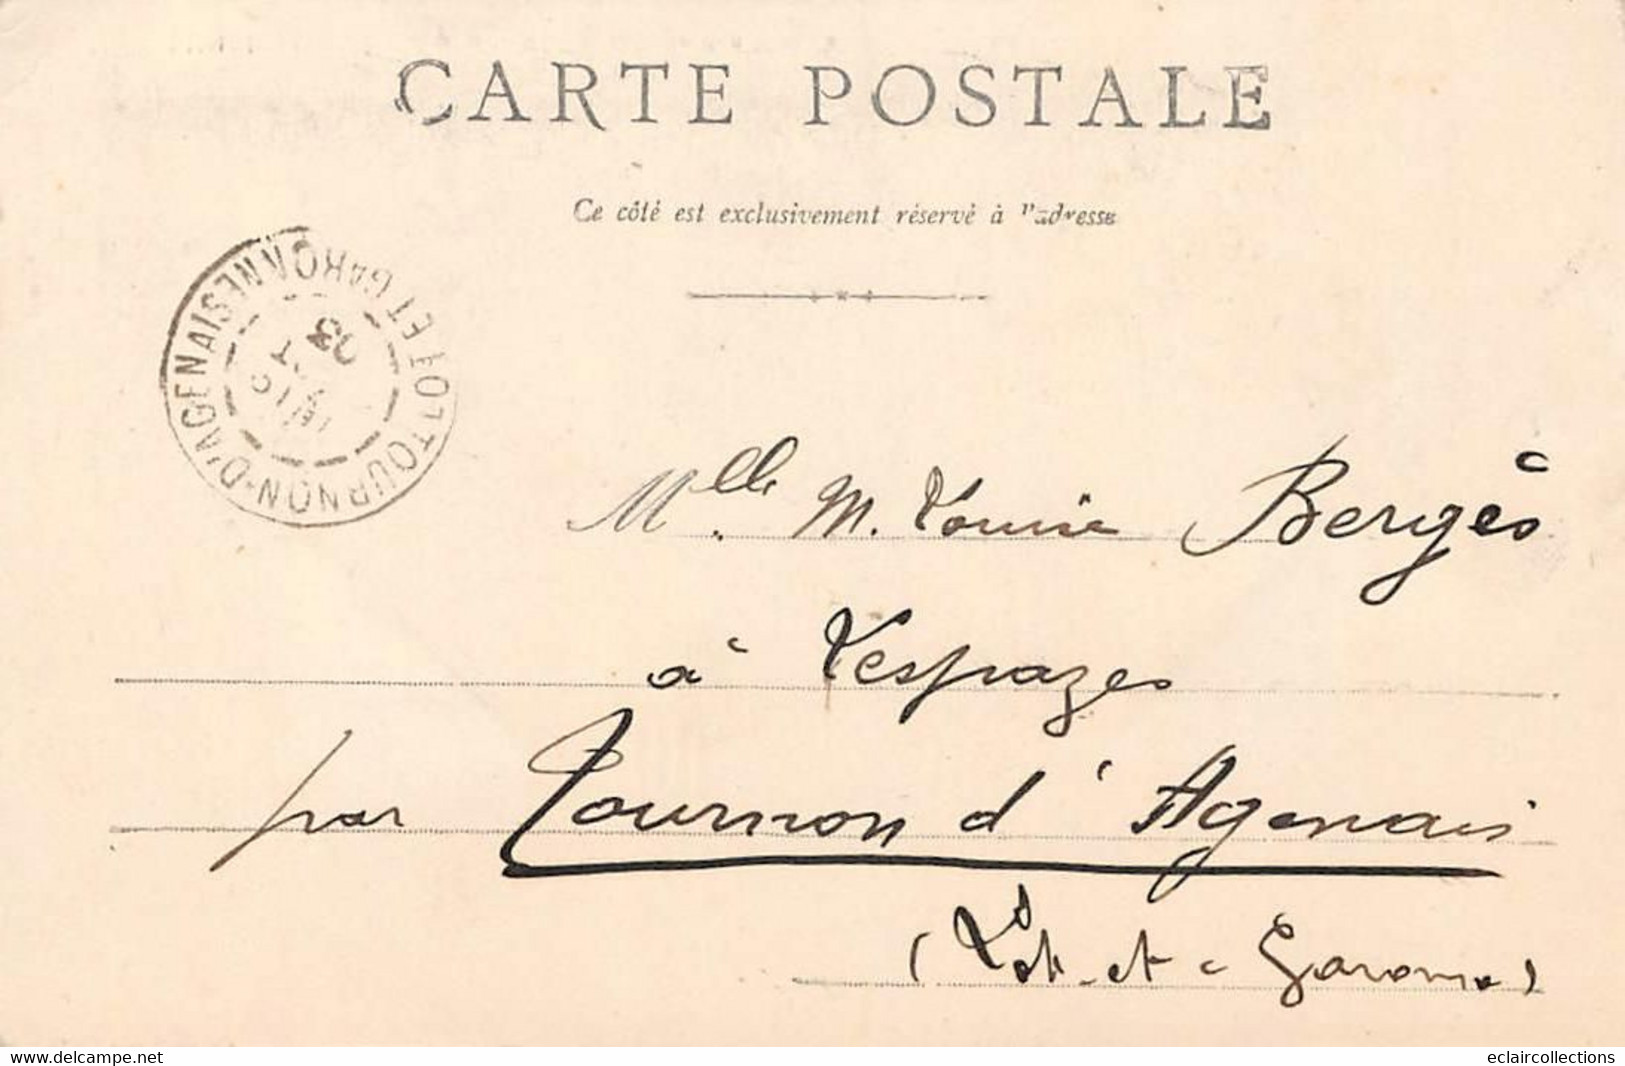 CARTE POSTALE
Ce côté est exclusivement réservé à l'adresse
TOURNON-D'AGENAIS LOT ET GARONNE
03
Mlle M. Louise Bergès
à Lespazes
par Tournon d'Agenais
(Lot-et-Garonne)
www.delcampe.net
eclaircollections